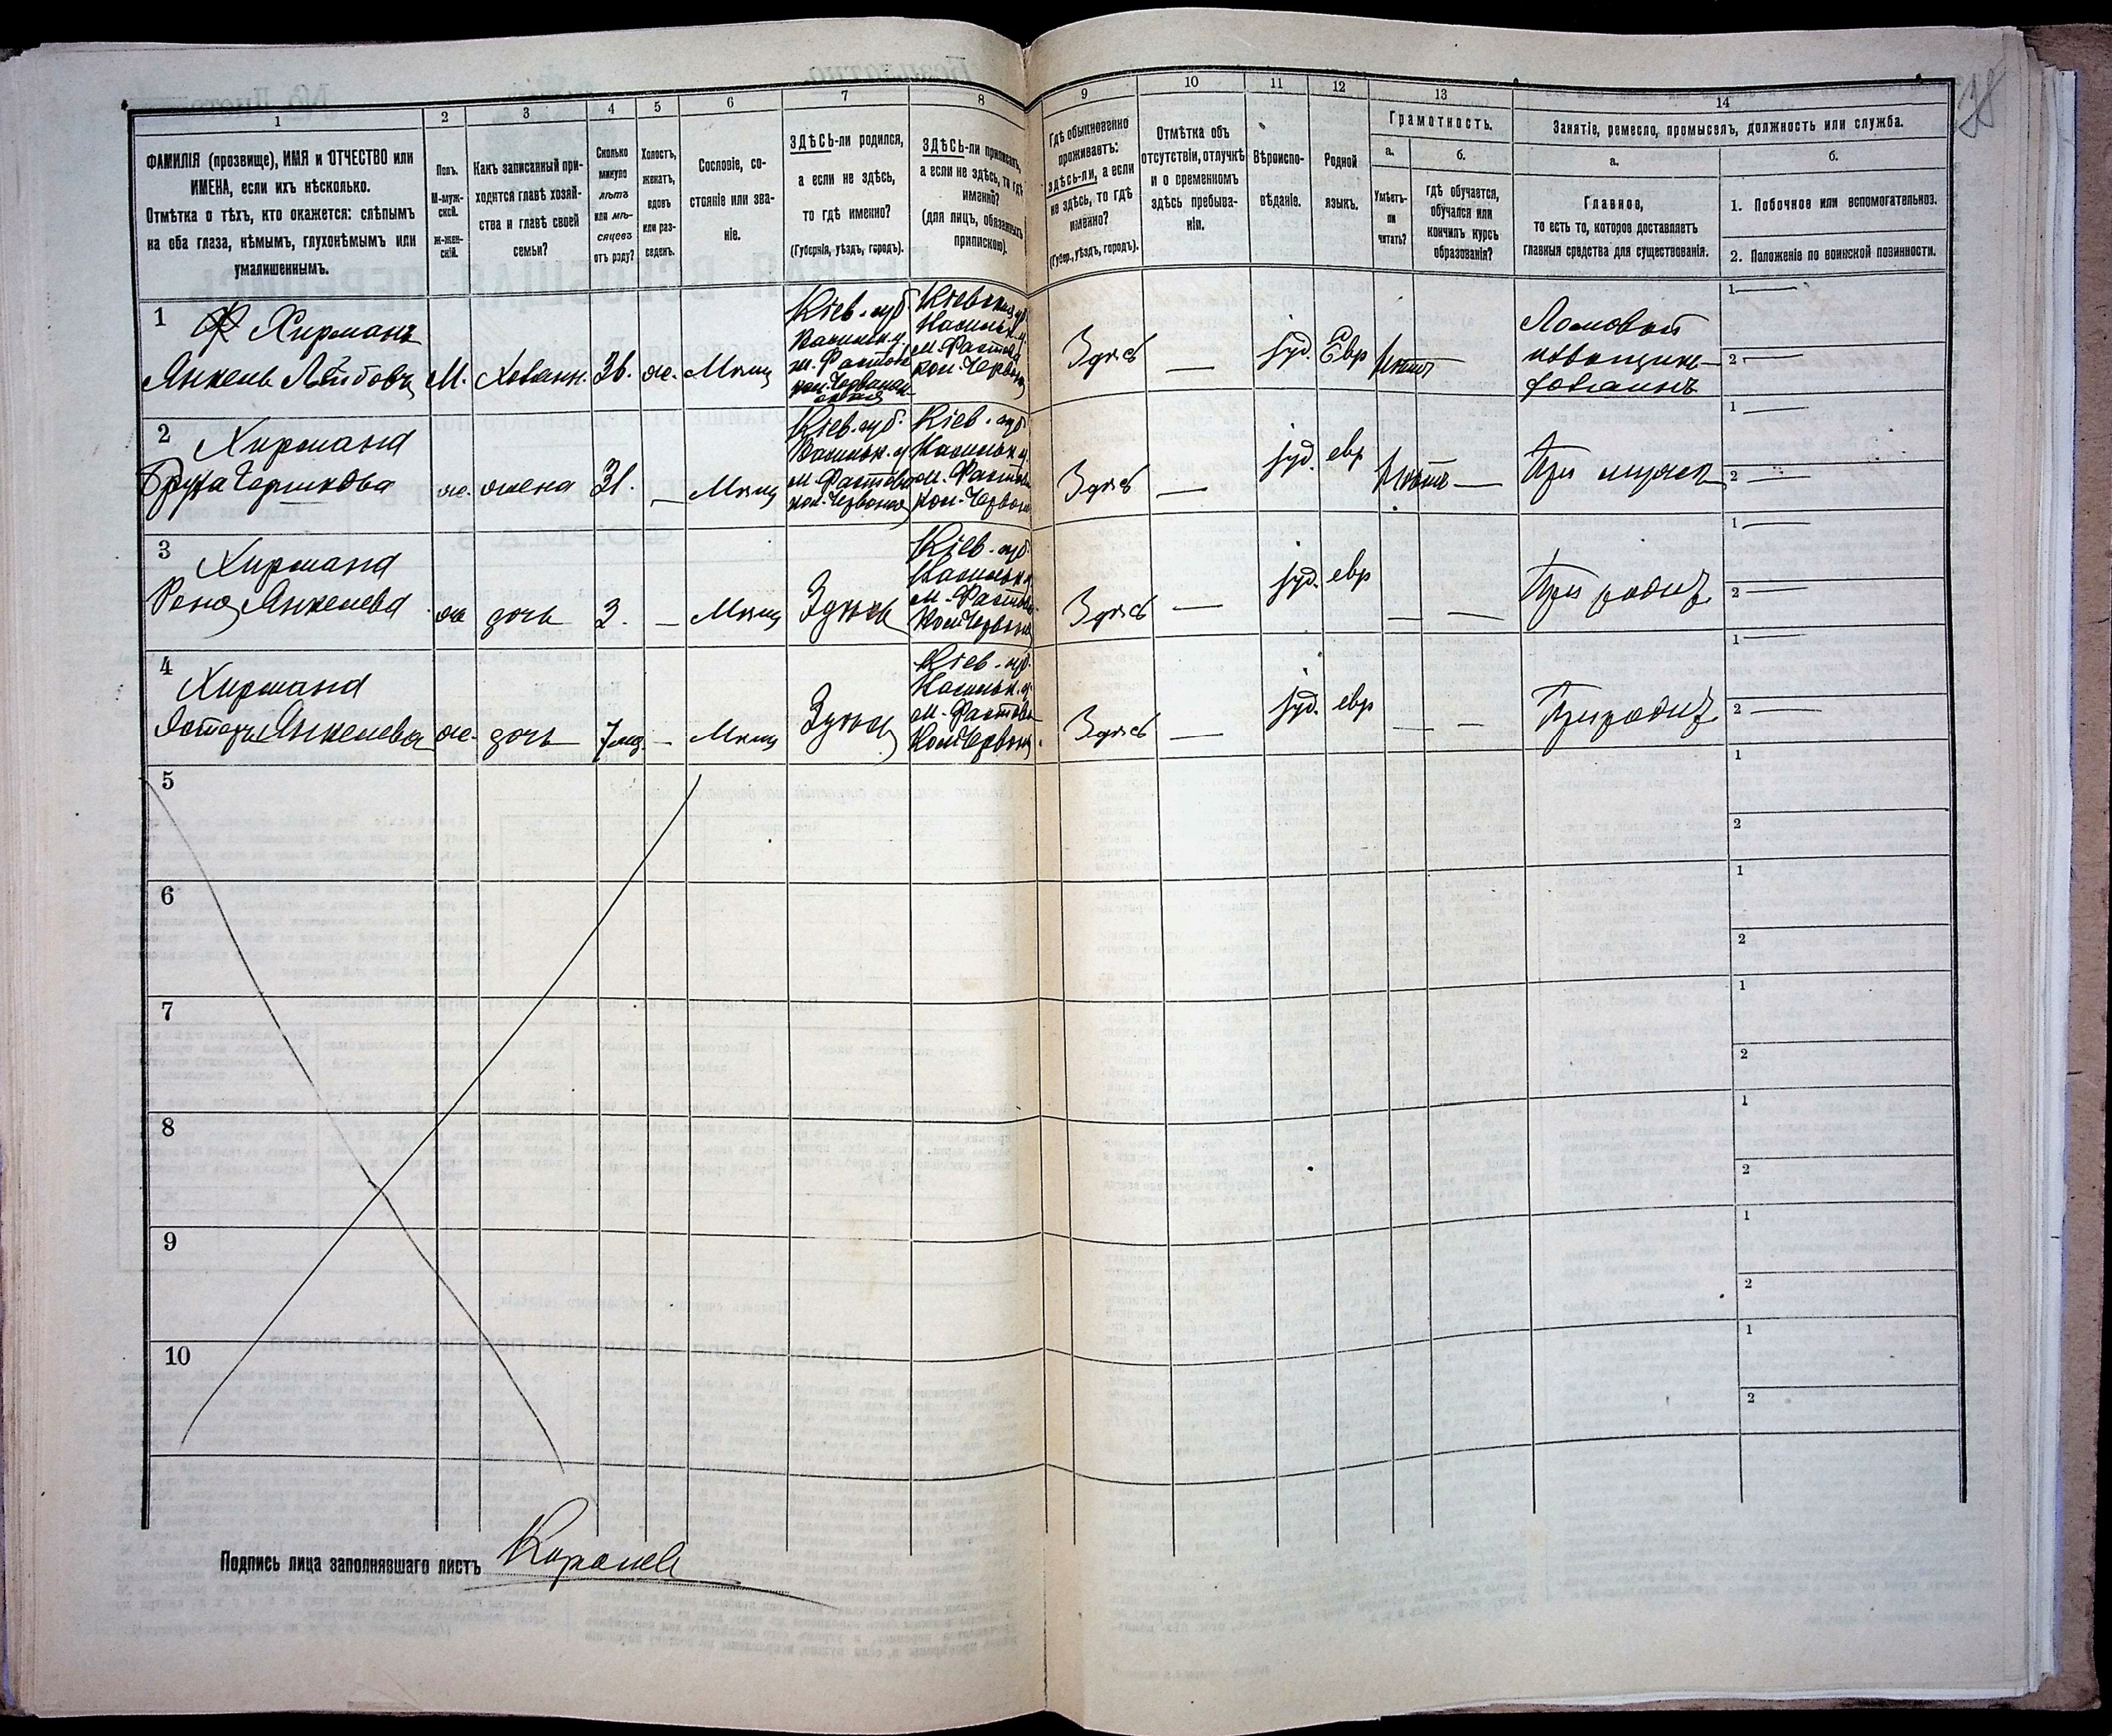 1 2 3 4 5 6 7 8 9 10 11 12 13 14
ФАМИЛІЯ (прозвище), ИМЯ и ОТЧЕСТВО или
ИМЕНА, если ихъ нѣсколько.
Отмѣтка о тѣхъ, кто окажется: слѣпымъ
на оба глаза, нѣмымъ, глухонѣмымъ или
умалишеннымъ.
Полъ.
М-муж-
ской.
ж-жен-
скій.
Какъ записанный при-
ходится главѣ хозяй-
ства и главѣ своей
семьи?
Сколько
минуло
лѣтъ
или мѣ-
сяцевъ
отъ роду?
Холостъ,
женатъ,
вдовъ
или раз-
веденъ.
Сословіе, со-
стояніе или зва-
ніе.
ЗДѢСЬ-ли родился,
а если не здѣсь,
то гдѣ именно?
(Губернія, уѣздъ, городъ).
ЗДѢСЬ-ли приписанъ,
а если не здѣсь, то гдѣ
именно?
(для лицъ, обязанныхъ
припискою).
Гдѣ обыкновенно
проживаетъ:
здѣсь-ли, а если
не здѣсь, то гдѣ
именно?
(Губер., уѣздъ, городъ).
Отмѣтка объ
отсутствіи, отлучкѣ
и о временномъ
здѣсь пребыва-
ніи.
Вѣроиспо-
вѣданіе.
Родной
языкъ.
Грамотность.
а.
Умѣетъ-
ли
читать?
б.
гдѣ обучается,
обучался или
кончилъ курсъ
образованія?
Занятіе, ремесло, промыселъ, должность или служба.
а.
Главное,
то есть то, которое доставляетъ
главныя средства для существованія.
б.
1. Побочное или вспомогательное.
2. Положеніе по воинской повинности.
28
1 Хирманъ
Янкель Лейбовъ М. Хозяин. 36. ж. Мѣщ
Кіев. губ
Васильк. у.
м. Фастовъ
Кіевская губ.
Васильк. у.
м. Фастовъ
Здѣсь — іуд. Евр
Ломовой
извощикъ
хозяинъ
1 —
2 —
2 Хирмана
жена 31. — Мѣщ
Кіев. губ.
Васильк. у
м. Фастовъ
Кіев. губ
Васильк. у.
м. Фастовъ
Здѣсь — іуд. евр — При мужѣ
1 —
2 —
3 Хирмана
Янкелева ж дочь 3. — Мѣщ Здѣсь
Кіев. губ.
Васильк. у.
м. Фастовъ
Здѣсь — іуд. евр — — При родит.
1 —
2 —
4 Хирмана
Янкелева ж. дочь 7 мѣс. — Мѣщ Здѣсь
Кіев. губ.
Васильк. у.
м. Фастовъ
Здѣсь — іуд. евр — — При родит.
1 —
2 —
5
1
2
6
1
2
7
1
2
8
1
2
9
1
2
10
1
2
Подпись лица заполнявшаго листъ